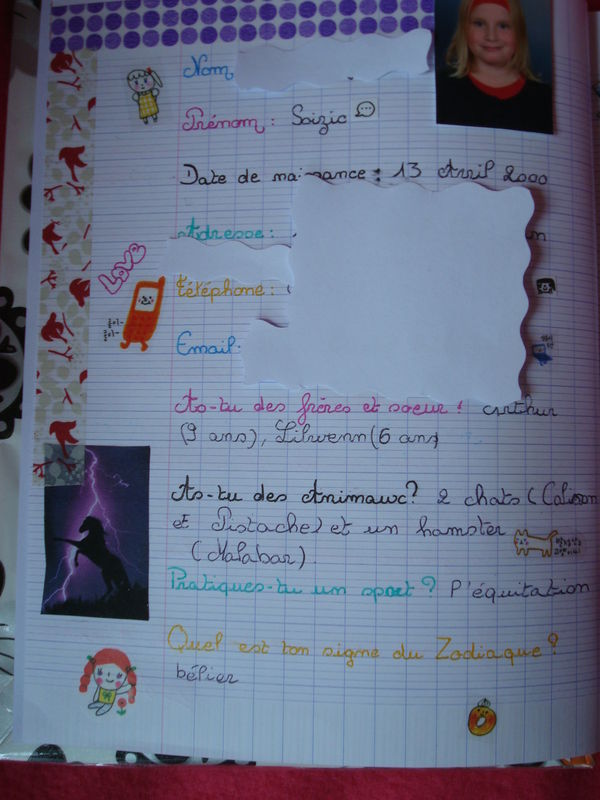 Nom
Prénom : Soizic
Date de naissance : 13 Avril 2000
Adresse :
LOVE
téléphone :
Email.
As-tu des frères et soeur ! Arthur
(9 ans), Lilwenn (6 ans)
As-tu des Animaux? 2 chats (Calisson
et Pistache) et un hamster
(Malabar).
Pratiques-tu un sport ? l'équitation
Quel est ton signe du Zodiaque ?
bélier